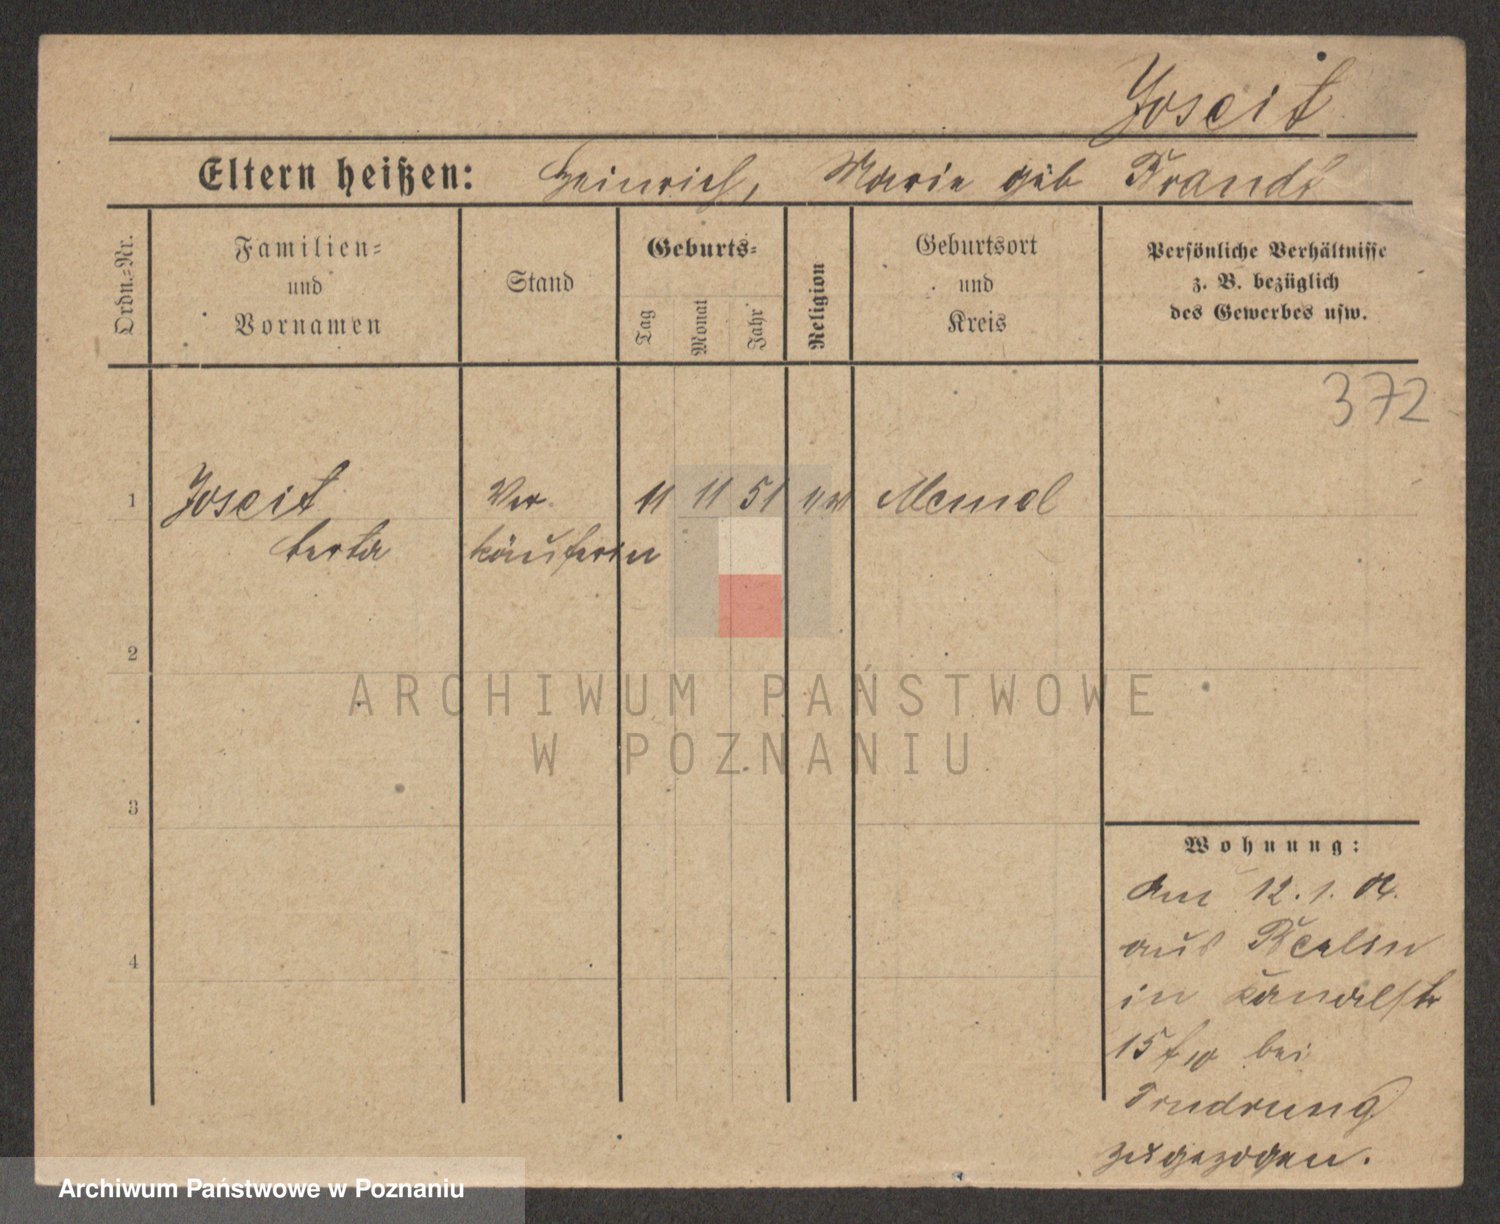 Joseit
Eltern heißen: Heinrich, Marie geb Brandt
Ordn.=Nr.
Familien=
und
Vornamen
Stand
Geburts=
Tag
Monat
Jahr
Religion
Geburtsort
und
Kreis
Persönliche Verhältnisse
z. B. bezüglich
des Gewerbes usw.
372
1 Joseit Ver 11 11 51 Memel
berta käuferin
2
ARCHIWUM PAŃSTWOWE
W POZNANIU
3
Wohnung:
Am 12.1.
aus Berlin
in Kanalstr
15 bei
4
zugezogen.
Archiwum Państwowe w Poznaniu